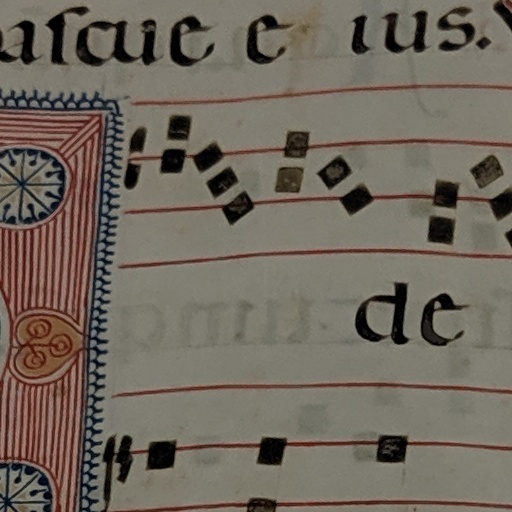 pascue e ius.
de